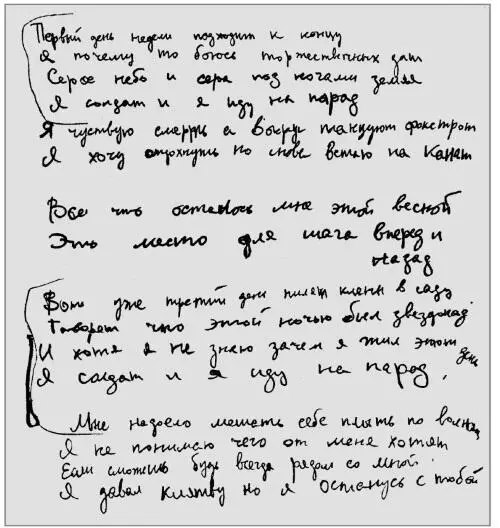 Первый день недели подходит к концу
Я почему то боюсь торжественных дат
Серое небо и сера под ногами земля
Я солдат и я иду на парад
Я чуствую смерть а вокруг танцуют фокстрот
Я хочу отдохнуть но снова встаю на канат
Все что осталось мне этой весной
Это место для шага вперед и
назад
Вот уже третий день пилят клены в саду
Говорят что этой ночью был звездопад
И хотя я не знаю зачем я жил этот день
Я солдат и я иду на парад
Мне надоело мешать себе плыть по волнам
Я не понимаю чего от меня хотят
Если сможешь будь всегда рядом со мной
Я давал клятву но я останусь с тобой